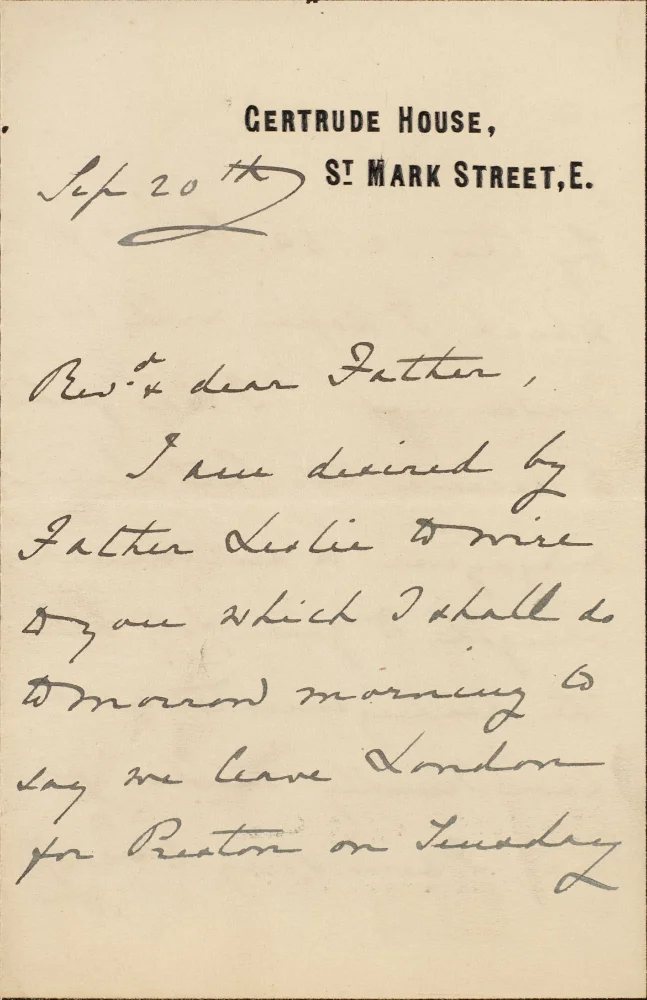 GERTRUDE HOUSE,
Sep 20th ST MARK STREET, E.
Revd & dear Father,
I am desired by
Father Leslie to wire
to you which I shall do
tomorrow morning to
say we leave London
for Preston on Tuesday